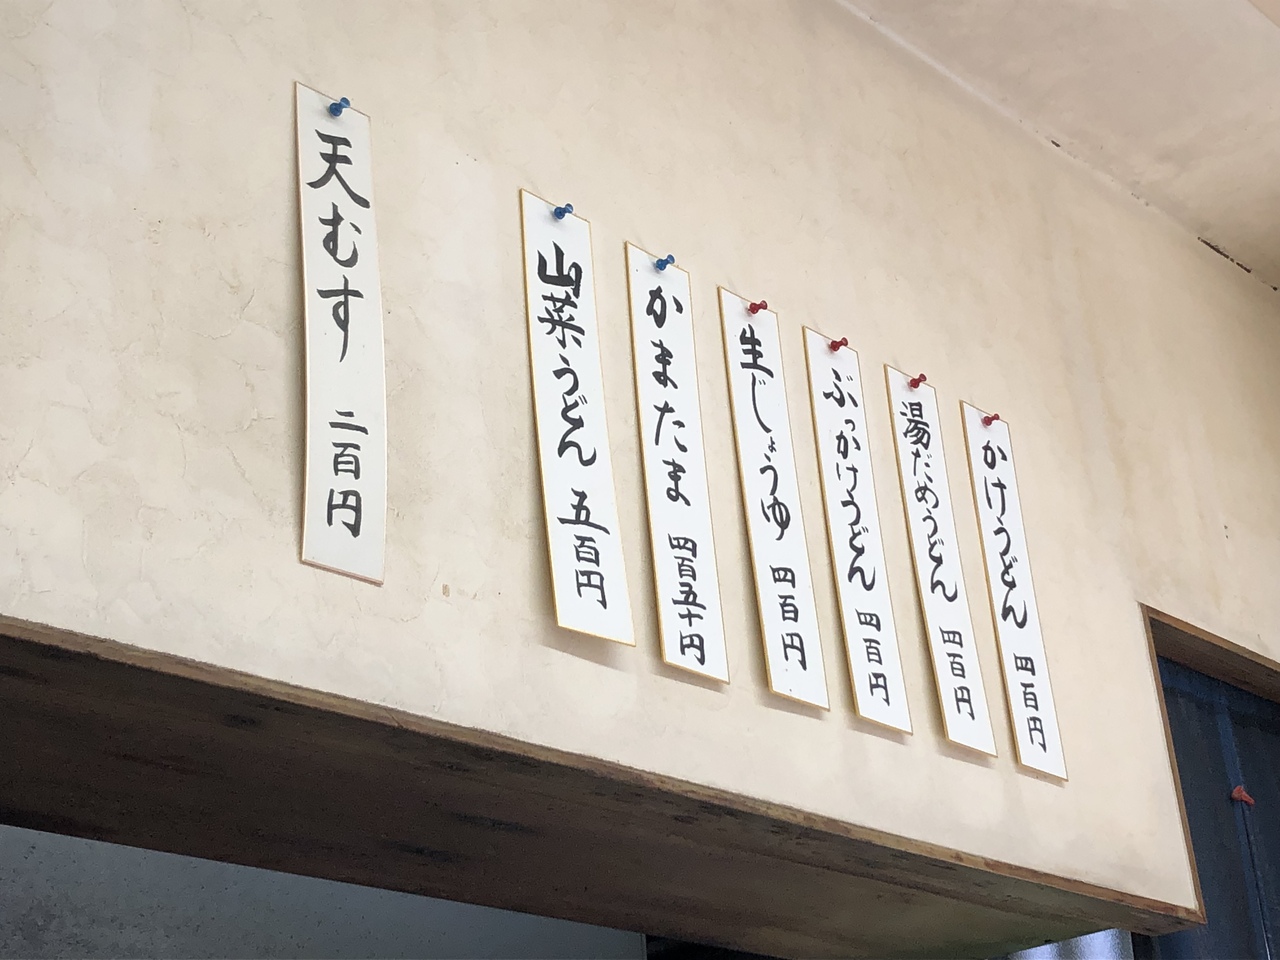 かけうどん 四百円
湯だめうどん 四百円
ぶっかけうどん 四百円
生じょうゆ 四百円
かまたま 四百五十円
山菜うどん 五百円
天むす 二百円